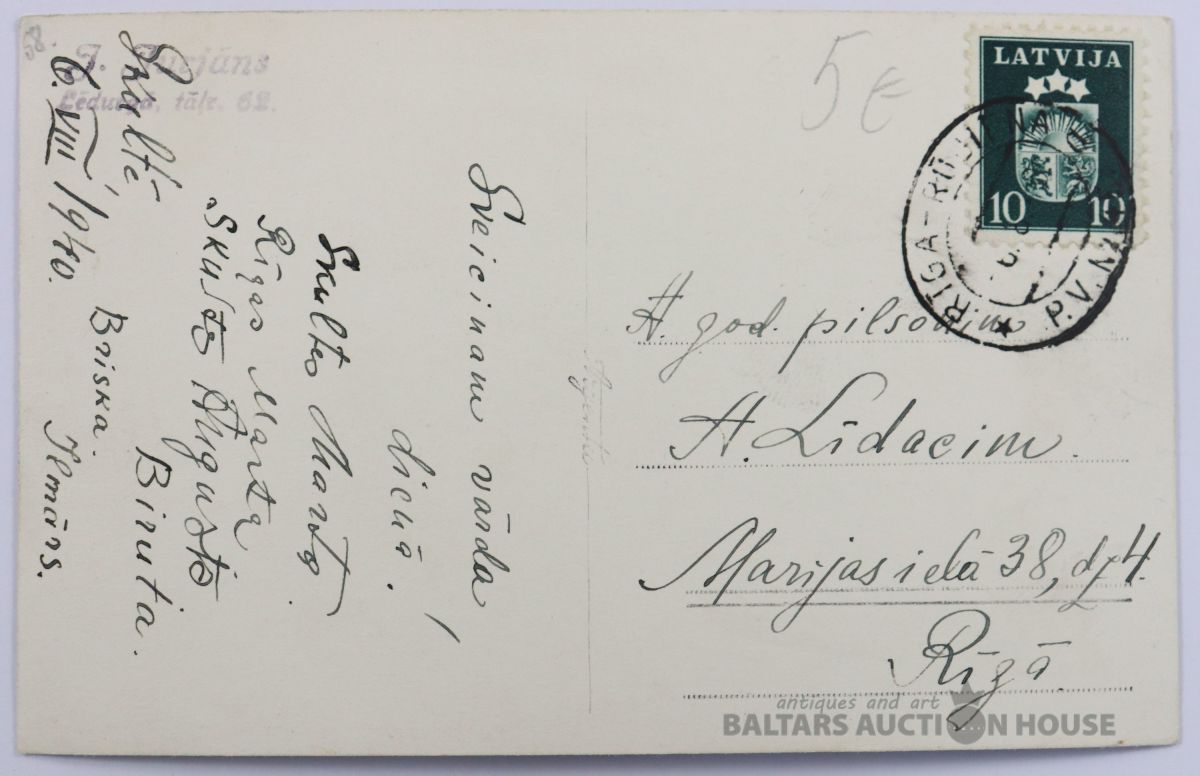 58.
Lēdurgā, tālr. 62.
Skultē
6. VIII 1940.
Sveicinam vārda
dienā!
Skultes Marta.
Rīgas Marta
Skuste Augusts
Biruta.
Briska.
Ilmārs.
5 €
LATVIJA
10 10
RĪGA-RŪJIENA
P.V.
A. god. pilsonim
A. Līdacim.
Marijas ielā 38, dz 4.
Rīgā
antiques and art
BALTARS AUCTION HOUSE